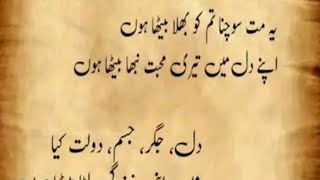 یہ مت سوچنا تم کو بھلا بیٹھا ہوں
اپنے دل میں تیری محبت نبھا بیٹھا ہوں
دل، جگر، جسم، دولت کیا